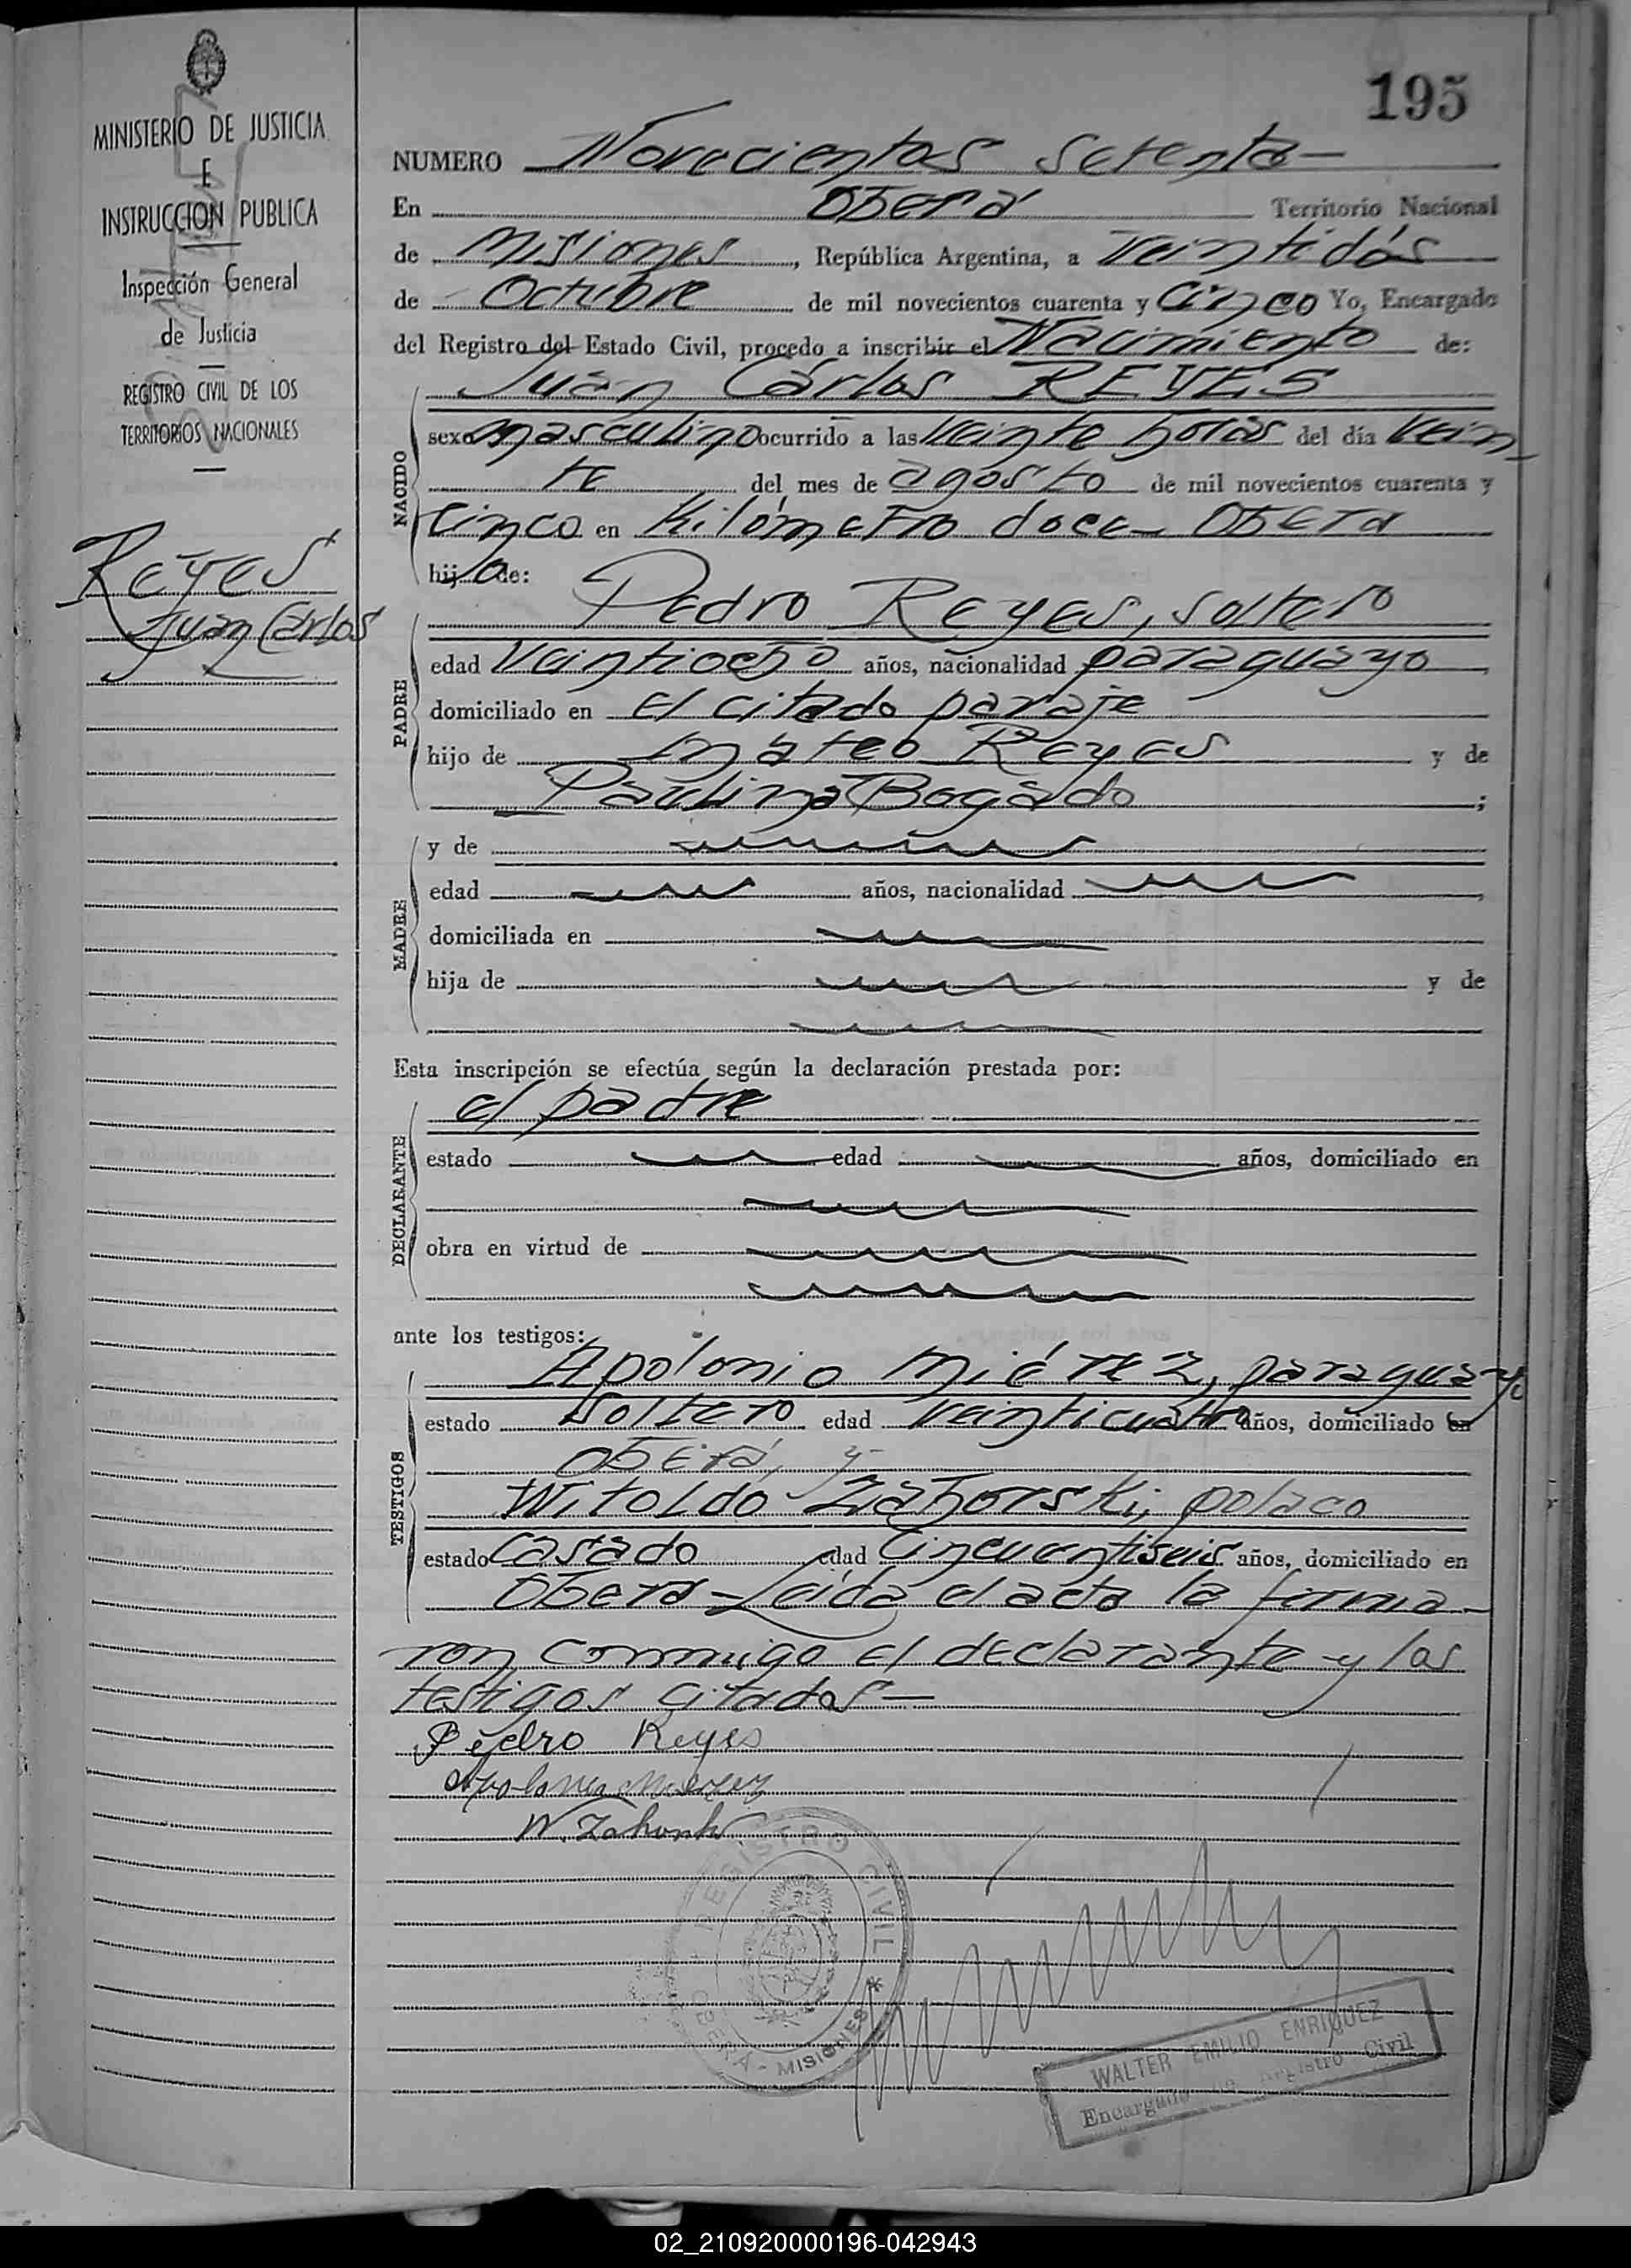 195
MINISTERIO DE JUSTICIA
E
INSTRUCCION PUBLICA
Inspección General
de Justicia
REGISTRO CIVIL DE LOS
TERRITORIOS NACIONALES
Reyes
Juan Carlos
NUMERO Novecientos setenta—
En Oberá Territorio Nacional
de Misiones, República Argentina, a veintidós
de Octubre de mil novecientos cuarenta y cinco Yo, Encargado
del Registro del Estado Civil, procedo a inscribir el Nacimiento de:
Juan Carlos REYES
NACIDO
sexo masculino ocurrido a las veinte horas del día vein-
te del mes de agosto de mil novecientos cuarenta y
cinco en kilómetro doce- Oberá
hijo de:
Pedro Reyes, soltero
PADRE
edad veintiocho años, nacionalidad paraguayo,
domiciliado en el citado paraje
hijo de Mateo Reyes y de
Paulina Bogado;
MADRE
y de
edad años, nacionalidad ,
domiciliada en
hija de y de
Esta inscripción se efectúa según la declaración prestada por:
el padre
DECLARANTE
estado edad años, domiciliado en
obra en virtud de
ante los testigos:
Apolonio Miérez, paraguayo
TESTIGOS
estado soltero edad veinticuatro años, domiciliado en
Oberá, y-
Witoldo Zahorski, polaco
estado casado edad cincuentiseis años, domiciliado en
Oberá- Leida el acta la firma-
ron conmigo el declarante y los
testigos citados—
Pedro Reyes
W. Zahorski
REGISTRO CIVIL
OBERA - MISIONES *
WALTER EMILIO ENRIQUEZ
Encargado de Registro Civil
02_210920000196-042943